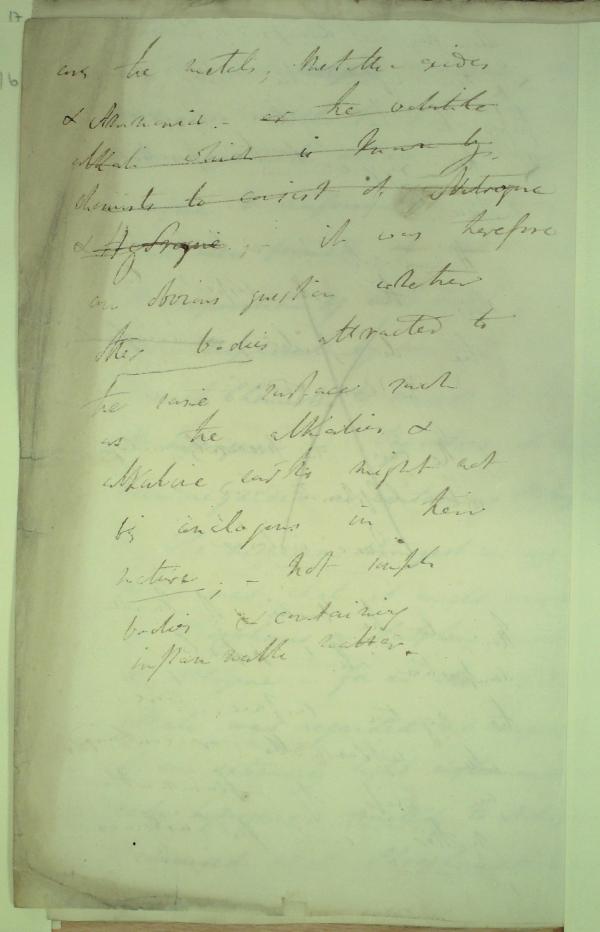 17
6
are the metals, Metallic oxides
& Ammonia. - or the volatile
alkali which is known by
chemists to consist of Nitrogene
& Hydrogene. ; - it was therefore
an obvious question whether
other bodies attracted to
the same surface such
as the alkalies &
alkaline earths might not
be analogous in their
nature ; - not simple
bodies & containing
inflammable matter.